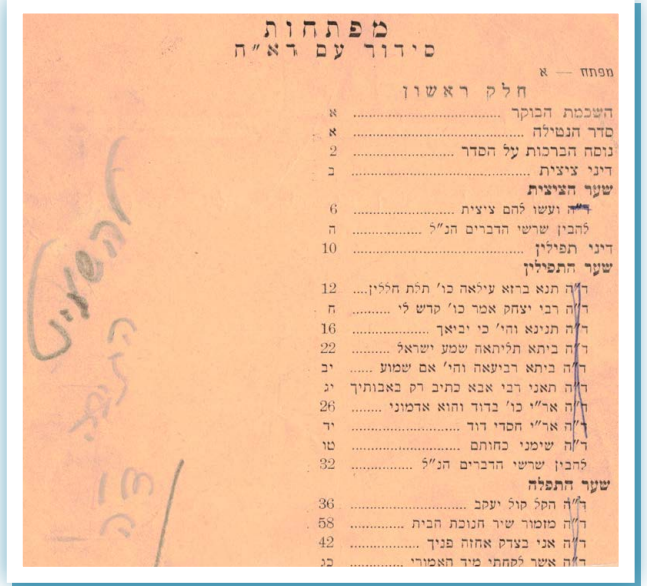 מפתחות
סידור עם דא״ח
מפתח — א
חלק ראשון
השכמת הבוקר ........ א
סדר הנטילה ........ א
נוסח הברכות על הסדר ........ 2
דיני ציצית ........ ב
שער הציצית
ד״ה ועשו להם ציצית ........ 6
להבין שרשי הדברים הנ״ל ........ ה
דיני תפילין ........ 10
שער התפילין
ד״ה תנא ברזא עילאה כו׳ תלת חללין.... 12
ד״ה רבי יצחק אמר כו׳ קדש לי ........ ח
ד״ה תנינא והי׳ כי יביאך ........ 16
ד״ה ביתא תליתאה שמע ישראל ........ 22
ד״ה ביתא רביעאה והי׳ אם שמוע ...... יב
ד״ה תאני רבי אבא כתיב רק באבותיך יג
ד״ה אר״י כו׳ בדוד והוא אדמוני ........ 26
ד״ה אר״י חסדי דוד ........ יד
ד״ה שימני כחותם ........ טו
להבין שרשי הדברים הנ״ל ........ 32
שער התפלה
ד״ה הקל קול יעקב ........ 36
ד״ה מזמור שיר חנוכת הבית ........ 58
ד״ה אני בצדק אחזה פניך ........ 42
ד״ה אשר לקחתי מיד האמורי ........ כג
ד״ה